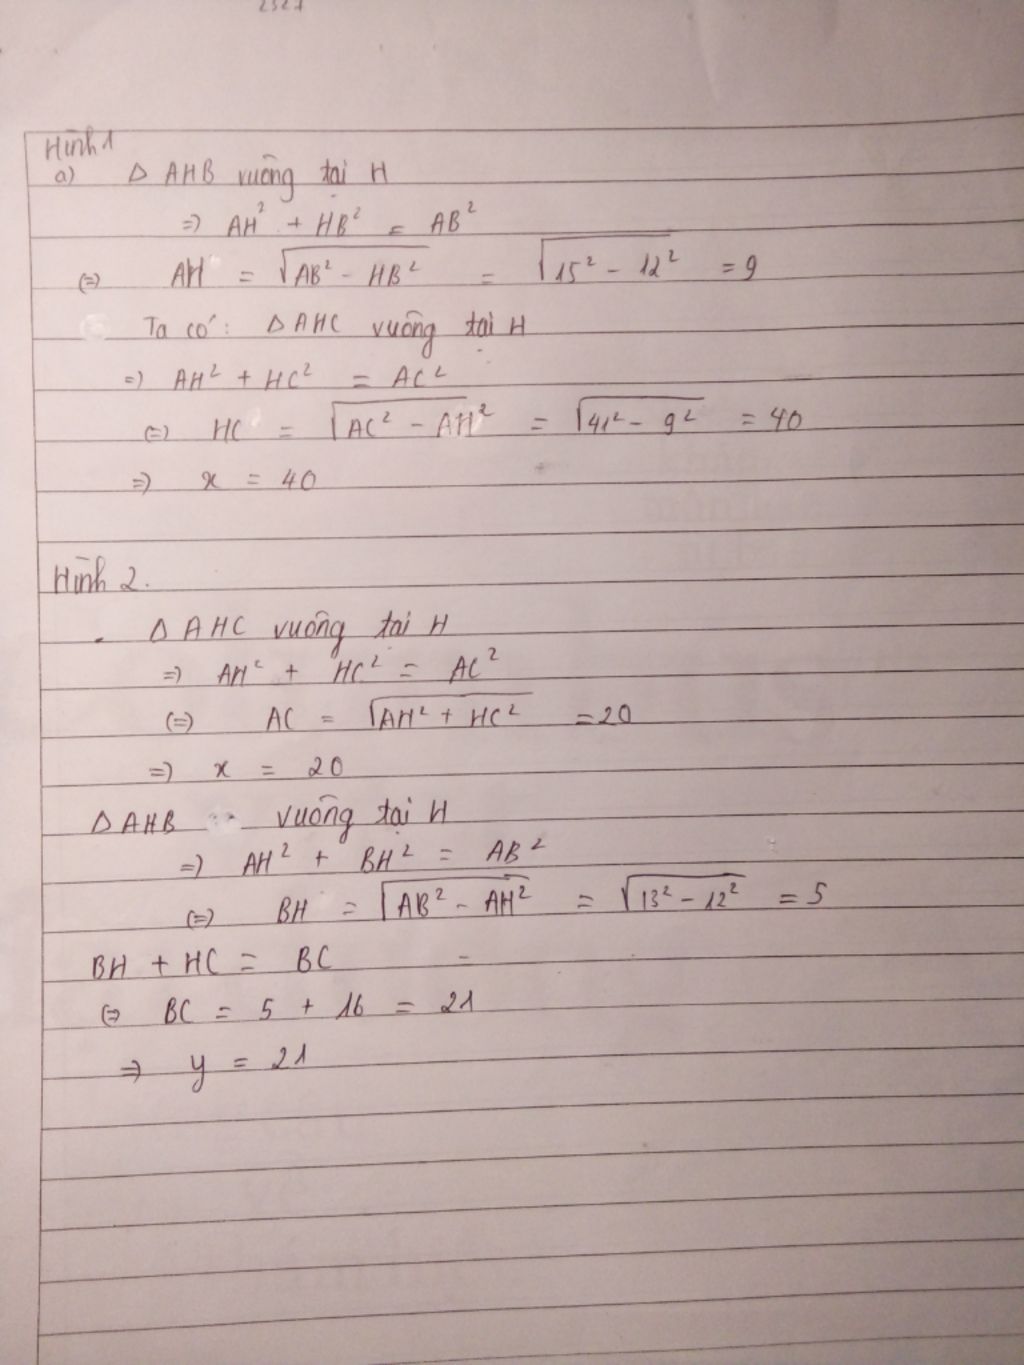 Hình 1
a) Δ AHB vuông tại H
=) AH² + HB² = AB²
(=) AH = √AB² - HB² = √15² - 12² = 9
Ta có: Δ AHC vuông tại H
=) AH² + HC² = AC²
(=) HC = √AC² - AH² = √41² - 9² = 40
=) x = 40
Hình 2.
. Δ AHC vuông tại H
=) AH² + HC² = AC²
(=) AC = √AH² + HC² = 20
=) x = 20
Δ AHB vuông tại H
=) AH² + BH² = AB²
(=) BH = √AB² - AH² = √13² - 12² = 5
BH + HC = BC
(=) BC = 5 + 16 = 21
=) y = 21